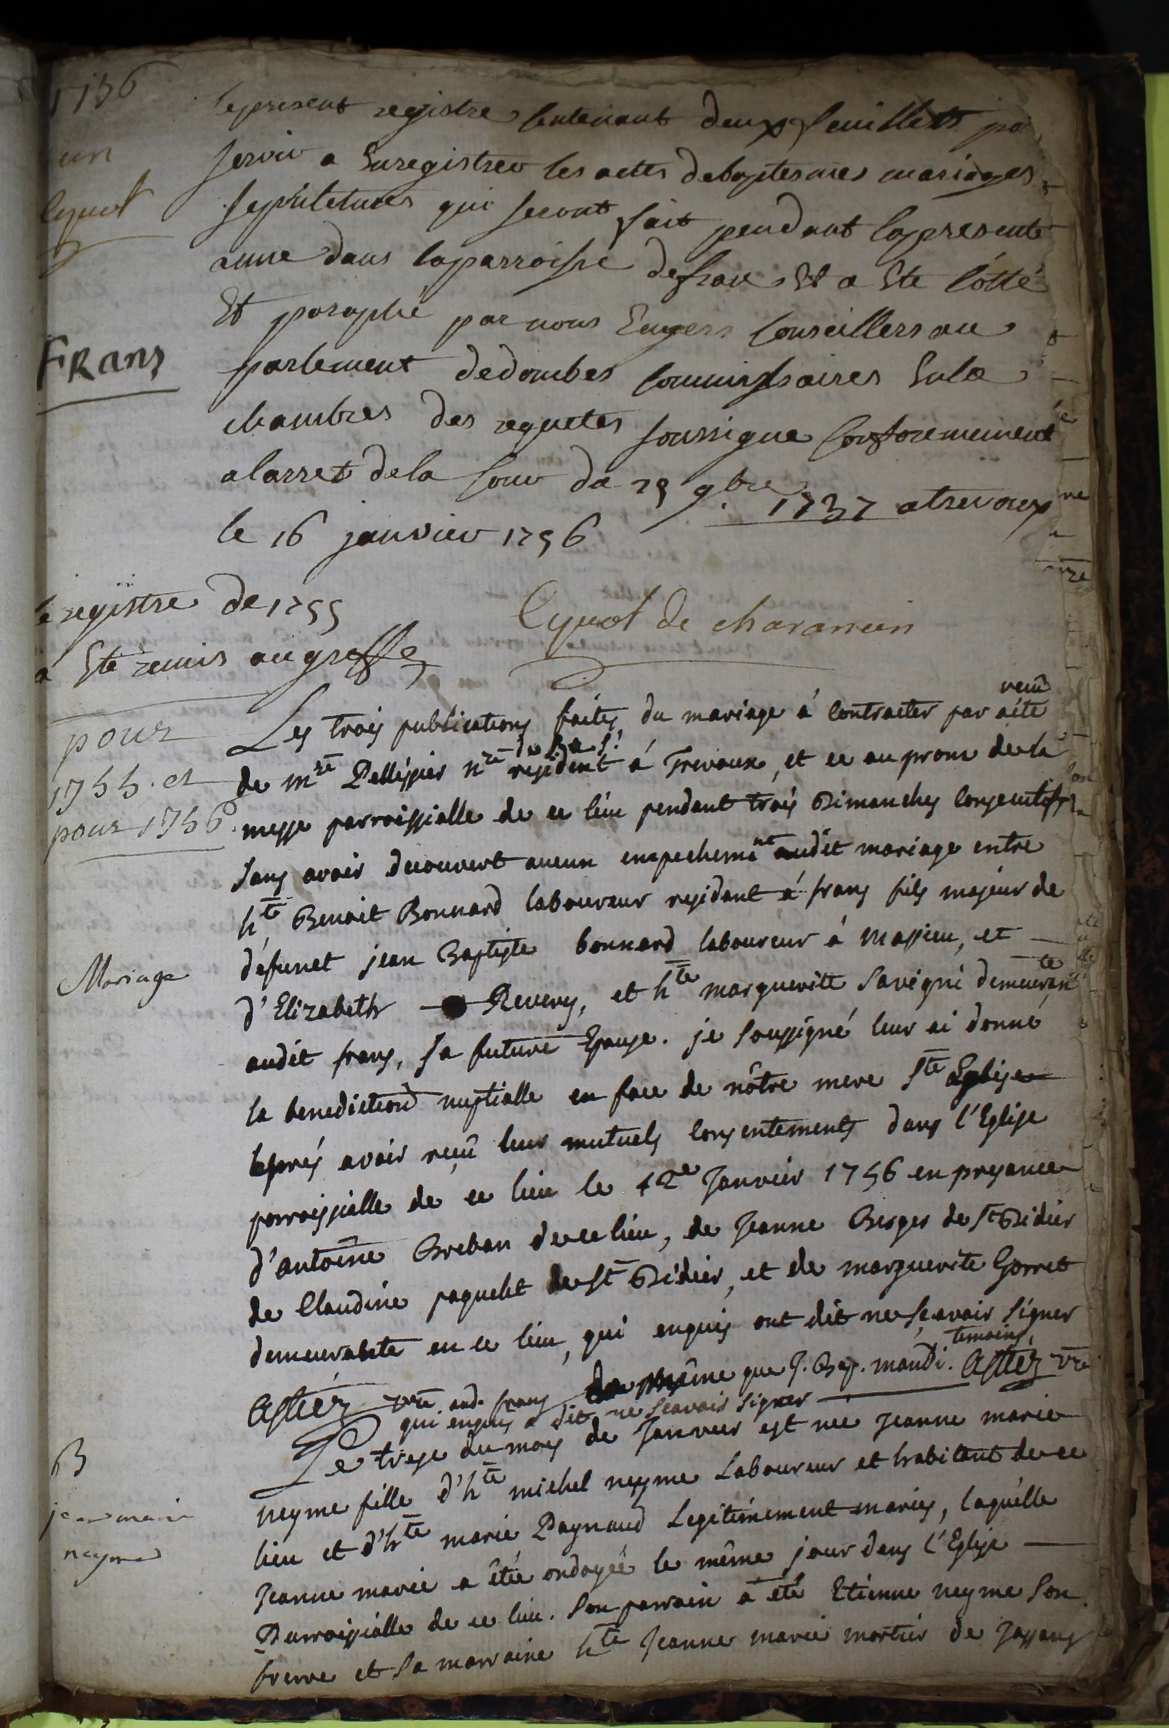 1756
un
Cquot
FRans
le present registre Contenant deux feuillets po
servir a Enregistrer les actes de baptesmes mariages
sepultures qui seront fait pendant la presente
anne dans la parroisse de frans Et a Ete Cotté
Et paraphé par nous Conseillers au
parlement de dombes Commissaires En la
chambres des requetes soussigne Conformement
a larret de la Cour du 29 9bre 1737 a trevoux
le 16 janvier 1756
le registre de 1755
a Ete remis au greffe
Cquot de charanein
pour
1755. et
pour 1756.
Les trois publications faites du mariage á Contracter par acte
recû
de mre Pellissier nre resident á Trevoux, et ce au prone de la
messe parroissialle de ce lieu pendant trois Dimanches consecutifs
sans avoir decouvert aucun empechemt audit mariage entre
hte Benoit Bonnard laboureur residant á frans fils majeur de
défunct jean Baptiste bonnard laboureur á Massieu, et
Mariage
d'Elizabeth Revery, et hte marguerite Savigni demeurante
audit frans, sa future Epouse. je soussigné leur ai donné
la benediction nuptialle en face de nôtre mere Ste Eglise
aprés avoir reçû leur mutuels consentements dans l'Eglise
parroissialle de ce lieu le 12e Janvier 1756 en presance
d'antoine Breban de ce lieu, de Jeanne Berger de St Didier
de Claudine paquelet de St Didier, et de marguerite Gorret
demeurante en ce lieu, qui enquis ont dit ne sçavoir signer
Astier vre aud. frans de même que J. Bap. mandi. temoins, Astier vre
qui enquis a dit ne sçavoir signer
Le treze du mois de Janvier est nee jeanne marie
B
jeanne marie
neyme
neyme fille d'hte michel neyme Laboureur et habitant de ce
lieu et d'hte marie Paynaud Legitimement mariés, laquelle
Jeanne marie a été ondoyée le même jour dans l'Eglise
Parroissialle de ce lieu. son parrain a été Etienne neyme son
frerre et sa marraine hte Jeanne marie mortier de Jassans